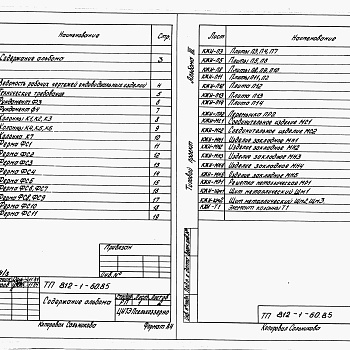 Наименование Стр.
Содержание альбома 3
Ведомость рабочих чертежей индивидуальных изделий 4
Технические требования 5
Фундамент Ф3 6
Фундамент Ф4 7
Колонны К1, К2, К3 8
Колонны К4, К5, К6 9
Колонна К7 10
Ферма ФС1 11
Ферма ФС2 12
Ферма ФС3 13
Ферма ФС4 14
Ферма ФС5 15
Ферма ФС6, ФС7 16
Ферма ФС8, ФС9 17
Ферма ФС10 18
Ферма ФС11 19
Привязан
Инв. №
ТП 812-1-60.85
Содержание альбома
Стадия Лист Листов
РП 1
Копировал Сальникова Формат А4
Альбом III
Типовой проект
Лист Наименование
КЖИ-П3 Плиты П3, П4, П7
КЖИ-П5 Плиты П5, П6
КЖИ-П8 Плиты П8, П9, П10
КЖИ-П11 Плиты П11, П2
КЖИ-П12 Плита П12
КЖИ-П13 Плита П13
КЖИ-П14 Плита П14
Соединительное изделие МС1
Соединительное изделие МС2
КЖИ-МН1 Изделие закладное МН1
КЖИ-МН2 Изделие закладное МН2
КЖИ-МН3 Изделие закладное МН3
КЖИ-МН4 Изделие закладное МН4
КЖИ-МН5 Изделие закладное МН5
КЖИ-МР1 Решетка металлическая МР1
КЖИ-Щм1 Щит металлический Щм1
КЖИ-Щм2 Щит металлический Щм2, Щм3
Элемент колонны Т1
ТП 812-1-60.85
Копировал Сальникова